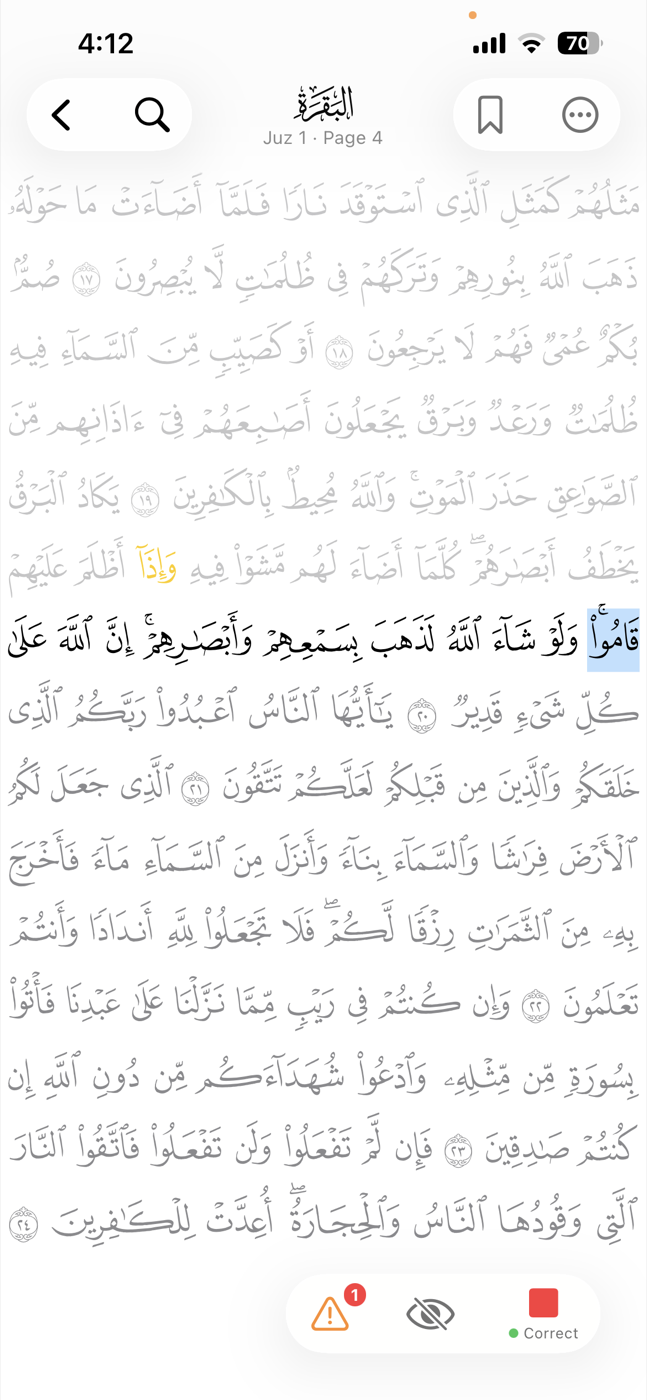 4:12
70
البَقَرَة
Juz 1 · Page 4
مَثَلُهُمْ كَمَثَلِ ٱلَّذِى ٱسْتَوْقَدَ نَارًا فَلَمَّآ أَضَآءَتْ مَا حَوْلَهُۥ
ذَهَبَ ٱللَّهُ بِنُورِهِمْ وَتَرَكَهُمْ فِى ظُلُمَـٰتٍ لَّا يُبْصِرُونَ ١٧ صُمٌّۢ
بُكْمٌ عُمْىٌ فَهُمْ لَا يَرْجِعُونَ ١٨ أَوْ كَصَيِّبٍ مِّنَ ٱلسَّمَآءِ فِيهِ
ظُلُمَـٰتٌ وَرَعْدٌ وَبَرْقٌ يَجْعَلُونَ أَصَـٰبِعَهُمْ فِىٓ ءَاذَانِهِم مِّنَ
ٱلصَّوَٰعِقِ حَذَرَ ٱلْمَوْتِ ۚ وَٱللَّهُ مُحِيطٌۢ بِٱلْكَـٰفِرِينَ ١٩ يَكَادُ ٱلْبَرْقُ
يَخْطَفُ أَبْصَـٰرَهُمْ ۖ كُلَّمَآ أَضَآءَ لَهُم مَّشَوْا۟ فِيهِ وَإِذَآ أَظْلَمَ عَلَيْهِمْ
قَامُوا۟ ۚ وَلَوْ شَآءَ ٱللَّهُ لَذَهَبَ بِسَمْعِهِمْ وَأَبْصَـٰرِهِمْ ۚ إِنَّ ٱللَّهَ عَلَىٰ
كُلِّ شَىْءٍ قَدِيرٌ ٢٠ يَـٰٓأَيُّهَا ٱلنَّاسُ ٱعْبُدُوا۟ رَبَّكُمُ ٱلَّذِى
خَلَقَكُمْ وَٱلَّذِينَ مِن قَبْلِكُمْ لَعَلَّكُمْ تَتَّقُونَ ٢١ ٱلَّذِى جَعَلَ لَكُمُ
ٱلْأَرْضَ فِرَٰشًا وَٱلسَّمَآءَ بِنَآءً وَأَنزَلَ مِنَ ٱلسَّمَآءِ مَآءً فَأَخْرَجَ
بِهِۦ مِنَ ٱلثَّمَرَٰتِ رِزْقًا لَّكُمْ ۖ فَلَا تَجْعَلُوا۟ لِلَّهِ أَندَادًا وَأَنتُمْ
تَعْلَمُونَ ٢٢ وَإِن كُنتُمْ فِى رَيْبٍ مِّمَّا نَزَّلْنَا عَلَىٰ عَبْدِنَا فَأْتُوا۟
بِسُورَةٍ مِّن مِّثْلِهِۦ وَٱدْعُوا۟ شُهَدَآءَكُم مِّن دُونِ ٱللَّهِ إِن
كُنتُمْ صَـٰدِقِينَ ٢٣ فَإِن لَّمْ تَفْعَلُوا۟ وَلَن تَفْعَلُوا۟ فَٱتَّقُوا۟ ٱلنَّارَ
ٱلَّتِى وَقُودُهَا ٱلنَّاسُ وَٱلْحِجَارَةُ ۖ أُعِدَّتْ لِلْكَـٰفِرِينَ ٢٤
1
Correct